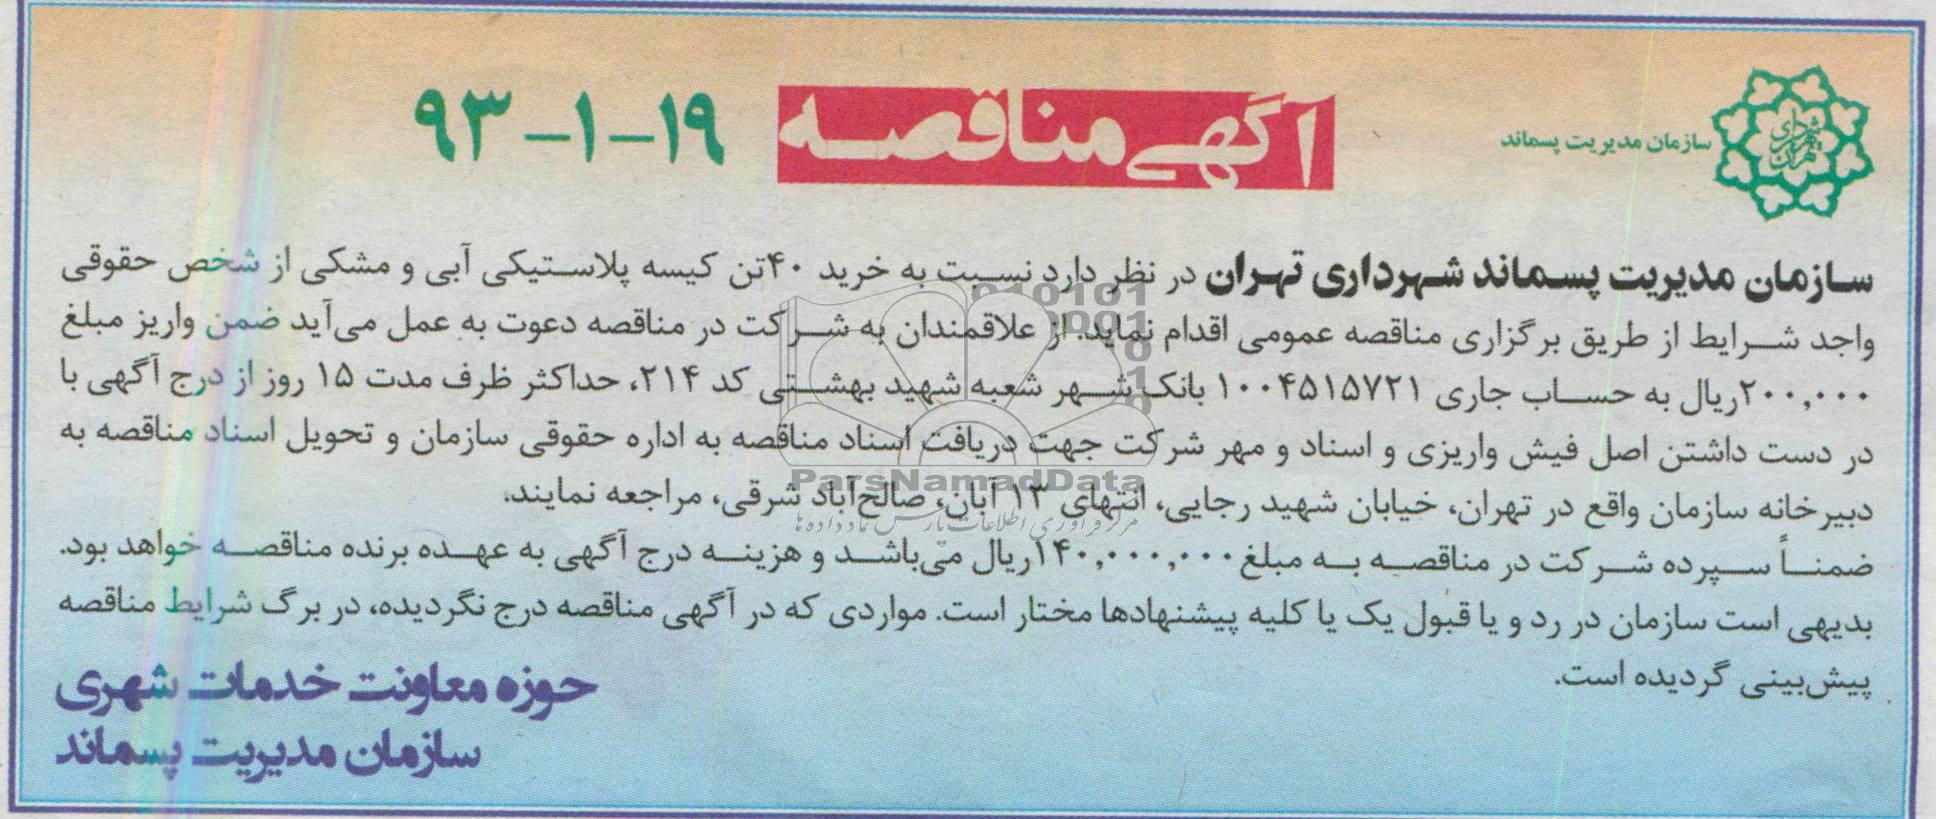 شهرداری تهران
سازمان مدیریت پسماند
آگهی مناقصه
۹۳-۱-۱۹
سازمان مدیریت پسماند شهرداری تهران در نظر دارد نسبت به خرید ۴۰تن کیسه پلاستیکی آبی و مشکی از شخص حقوقی
واجد شرایط از طریق برگزاری مناقصه عمومی اقدام نماید. از علاقمندان به شرکت در مناقصه دعوت به عمل می‌آید ضمن واریز مبلغ
۲۰۰,۰۰۰ریال به حساب جاری ۱۰۰۴۵۱۵۷۲۱ بانک شهر شعبه شهید بهشتی کد ۲۱۴، حداکثر ظرف مدت ۱۵ روز از درج آگهی با
در دست داشتن اصل فیش واریزی و اسناد و مهر شرکت جهت دریافت اسناد مناقصه به اداره حقوقی سازمان و تحویل اسناد مناقصه به
دبیرخانه سازمان واقع در تهران، خیابان شهید رجایی، انتهای ۱۳ آبان، صالح‌آباد شرقی، مراجعه نمایند.
ضمناً سپرده شرکت در مناقصه به مبلغ ۱۴۰,۰۰۰,۰۰۰ریال می‌باشد و هزینه درج آگهی به عهده برنده مناقصه خواهد بود.
بدیهی است سازمان در رد و یا قبول یک یا کلیه پیشنهادها مختار است. مواردی که در آگهی مناقصه درج نگردیده، در برگ شرایط مناقصه
پیش‌بینی گردیده است.
حوزه معاونت خدمات شهری
سازمان مدیریت پسماند
ParsNamadData
مرکز فرآوری اطلاعات پارس نماد داده ها